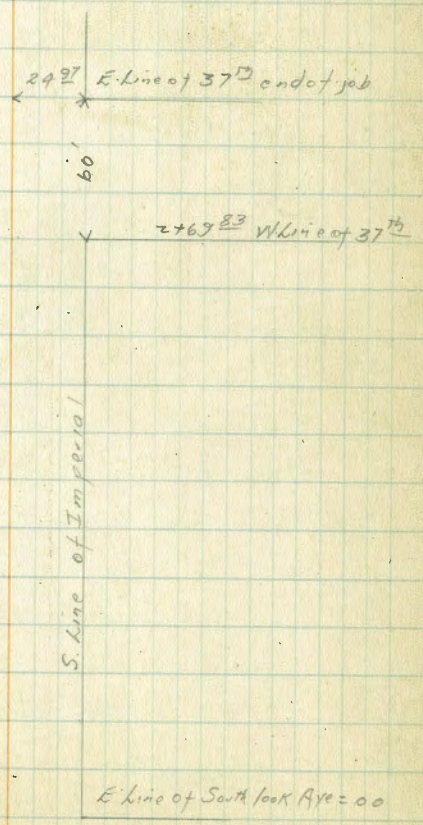 24 97 E. Line of 37th end of job
60'
2+69 83 W Line of 37th
S. Line of Imperial
E Line of South look Ave = 00